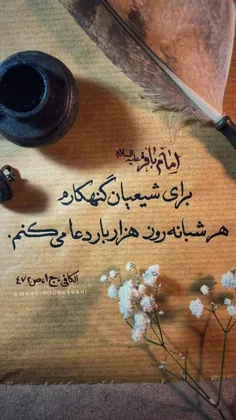 امام باقر علیه‌السلام
برای شیعیان گنهکارم
هر شبانه روز، هزار بار دعا می‌کنم.
الکافی، ج۱، ص ۴۷